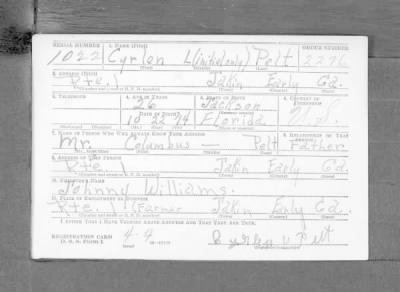 SERIAL NUMBER 1. NAME (Print) ORDER NUMBER
1022 Cyrlen L(initial only) Pelt 2276
(First) (Middle) (Last)
2. ADDRESS (Print)
Rte. Jakin Early Ga.
3. TELEPHONE 4. AGE IN YEARS 5. PLACE OF BIRTH 6. COUNTRY OF CITIZENSHIP
26 Jackson
DATE OF BIRTH
10 22 14 Florida U.S.
(Mo.) (Day) (Yr.)
7. NAME OF PERSON WHO WILL ALWAYS KNOW YOUR ADDRESS 8. RELATIONSHIP OF THAT PERSON
Mr. Columbus — Pelt Father
9. ADDRESS OF THAT PERSON
Rte. Jakin Early Ga.
10. EMPLOYER'S NAME
Johnny Williams.
11. PLACE OF EMPLOYMENT OR BUSINESS
Rte. (Farmer Jakin Early Ga.
I AFFIRM THAT I HAVE VERIFIED ABOVE ANSWERS AND THAT THEY ARE TRUE.
REGISTRATION CARD
D. S. S. Form 1
Pelt